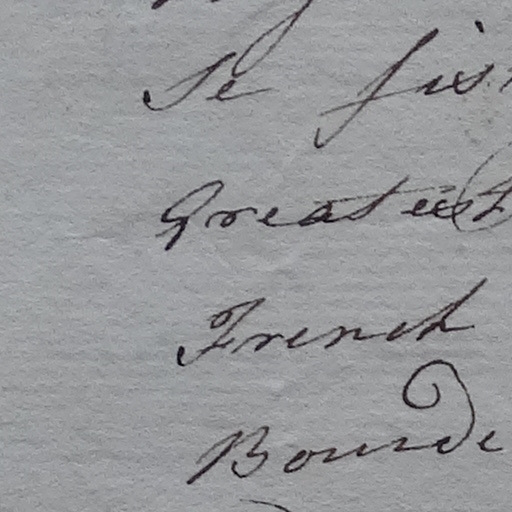 Se fis
Greatest
French
Bourde